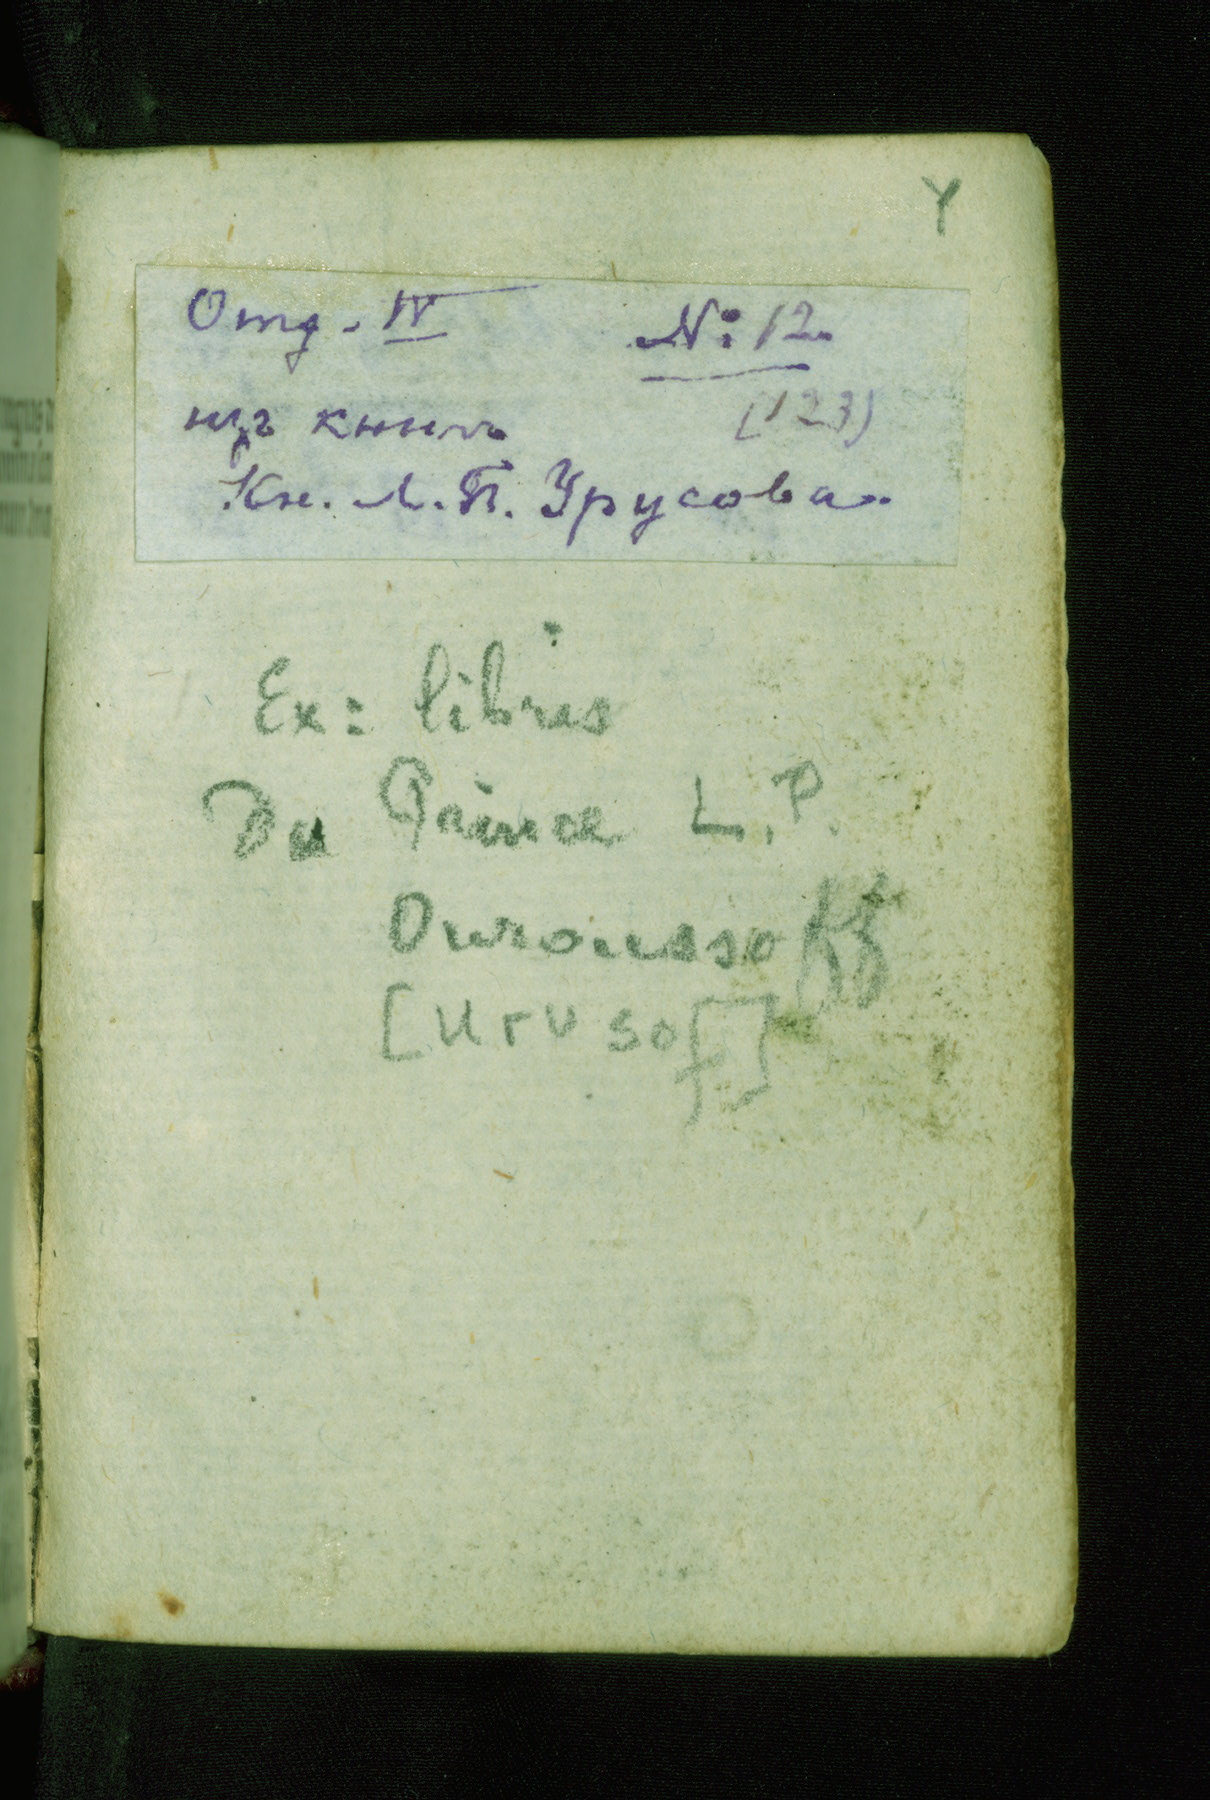 Y
Отд. IV № 12.
изъ книгъ (123)
Кн. Л. П. Урусова.
Ex: libris
Du Prince L. P.
Ouroussoff
[Urusof]